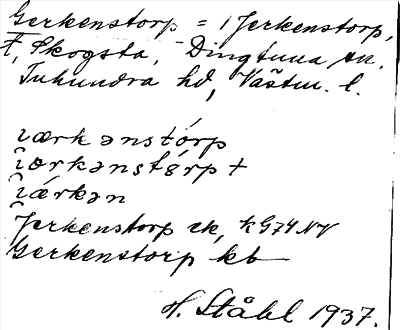 Gerkenstorp = Jerkenstorp,
f, Skogsta, Dingtuna sn,
Tuhundra hd, Västm. l.
ɪærkənstórp
ɪorkənstɵrp +
ɪǽrkən
Jerkenstorp ek, k G74 NV
Gerkenstorp kb
H. Ståhl 1937.